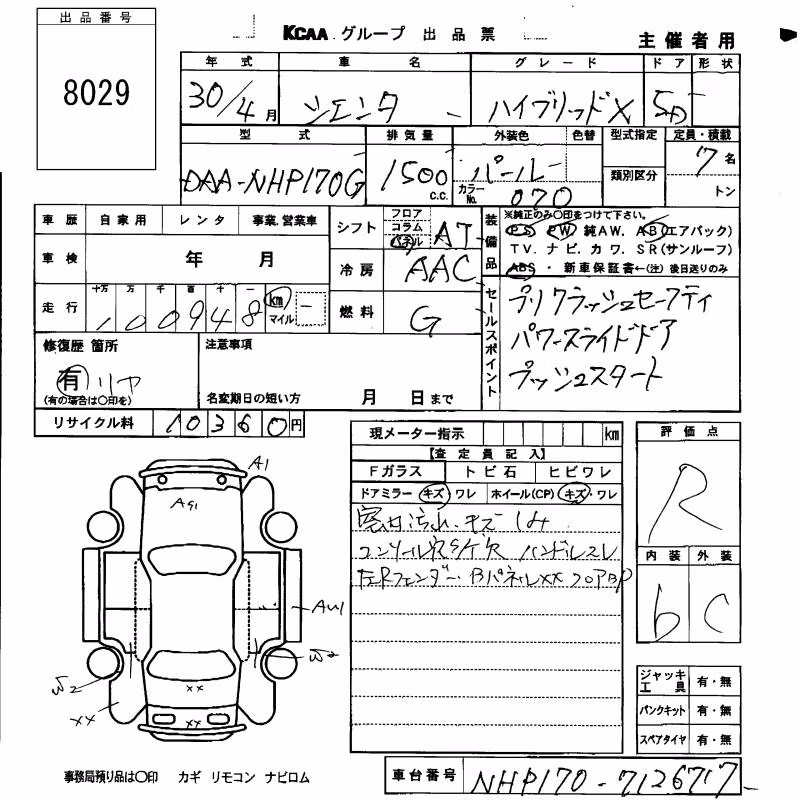 出品番号
8029
KCAA グループ 出品票
主催者用
年式 車名 グレード ドア 形状
30/4月 シエンタ ハイブリッドX 5D
型式 排気量 外装色 色替 型式指定 定員・積載
DAA-NHP170G 1500 c.c. パール 類別区分 7名
カラーNo. 070 トン
車歴 自家用 レンタ 事業.営業車
シフト フロア コラム パネル AT
装備品 ※純正のみ〇印をつけて下さい。
PS PW 純AW. AB(エアバック)
TV. ナビ. カワ. SR(サンルーフ)
ABS ・ 新車保証書←(注) 後日送りのみ
車検 年 月
冷房 AAC
走行 十万 万 千 百 十 一
100948 km マイル
燃料 G
セールスポイント
プリクラッシュセーフティ
パワースライドドア
プッシュスタート
修復歴 箇所
有 リヤ
(有の場合は〇印を)
注意事項
名変期日の短い方 月 日まで
リサイクル料 10360円
現メーター指示 km
【査定員記入】
Fガラス トビ石 ヒビワレ
ドアミラー キズ・ワレ ホイール(CP) キズ・ワレ
室内汚れ.キズ シミ
コンソール穴 ハンドルスレ
左Rフェンダー・BパネルXX フロアBP
評価点
R
内装 外装
b C
ジャッキ工具 有・無
パンクキット 有・無
スペアタイヤ 有・無
A1
A91
AW1
W2
W2
XX
XX
XX
事務局預り品は〇印 カギ リモコン ナビロム
車台番号 NHP170-7126717